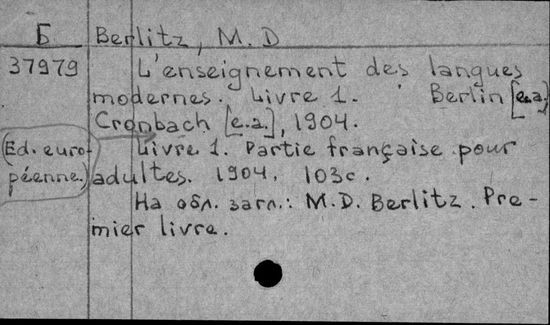 Б Berlitz, M. D
37979 L'enseignement des langues
modernes. Livre 1. Berlin [e.a.]
Cronbach [e.a.], 1904.
(Ed. euro- Livre 1. Partie française pour
péenne.) adultes. 1904. 103c.
На обл. загл.: M.D. Berlitz. Pre-
mier livre.